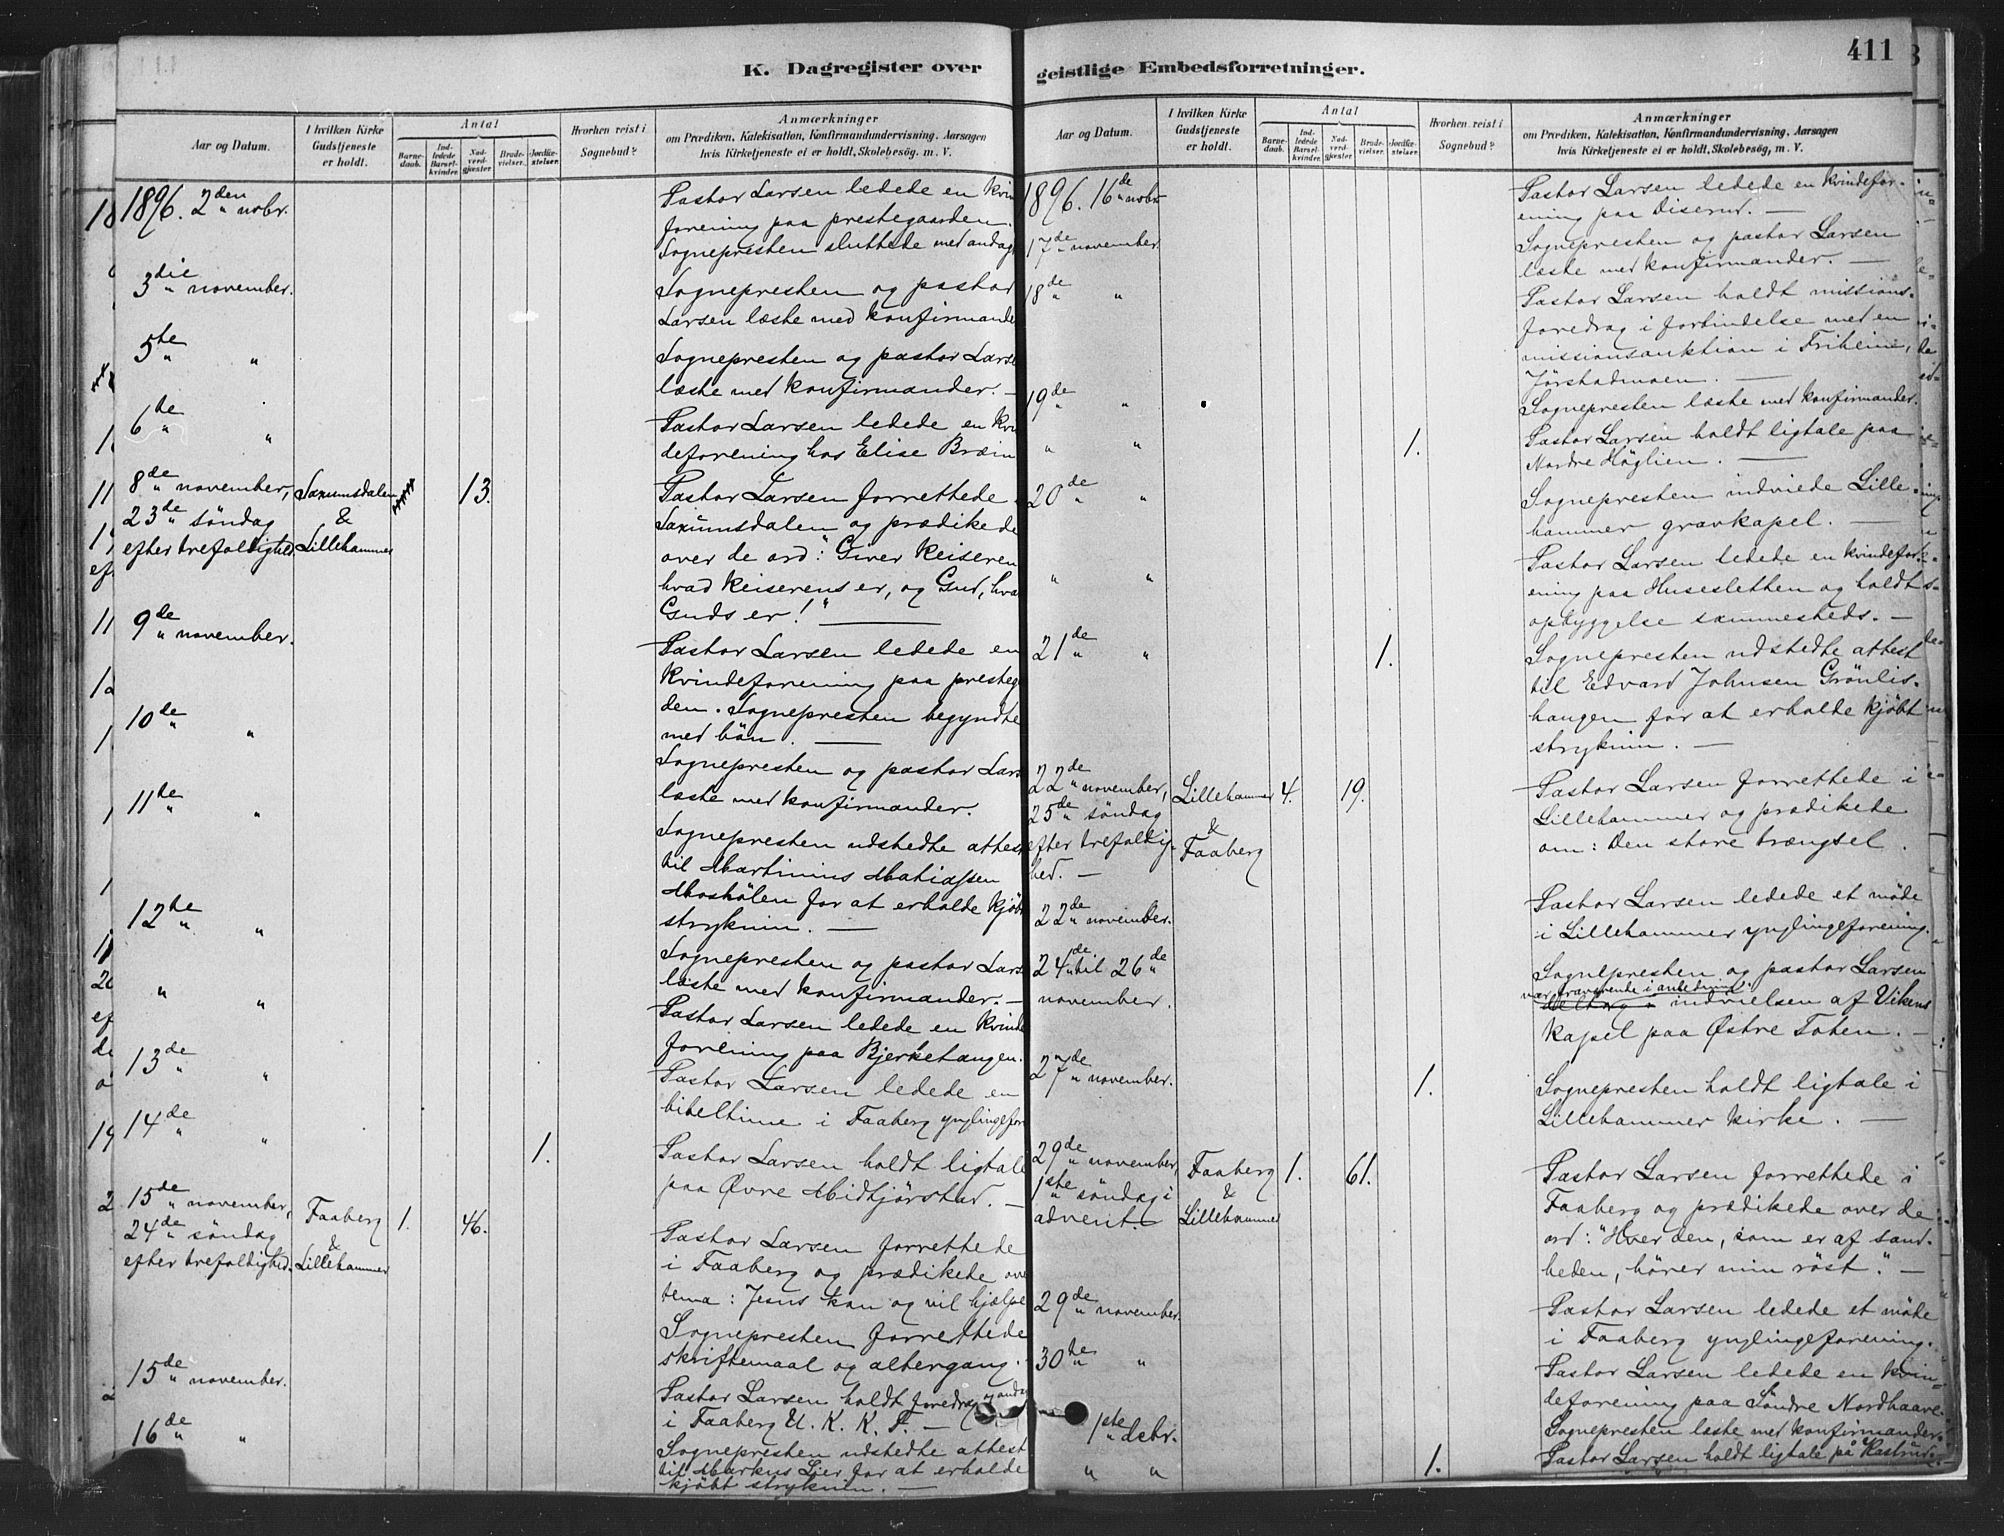 K. Dagregister over
geistlige Embedsforretninger.
411
Aar og Datum.
I hvilken Kirke Gudstjeneste er holdt.
Antal
Barnedaab.
Indledede Barselkvinder.
Nadverdgjæster
Brudevielser.
Jordfæstelser.
Hvorhen reist i Sognebud?
Anmærkninger
om Prædiken, Katekisation, Konfirmandundervisning, Aarsagen
hvis Kirketjeneste ei er holdt, Skolebesøg, m. V.
1896. 2den nobr.
Pastor Larsen ledede en kvin
forening paa prestegaarden.
Sognepresten sluttede med andagt
3die " november.
Sognepresten og pastor
Larsen læste med konfirmande
5te " "
Sognepresten og pastor Larse
læste med konfirmander. —
6de " "
Pastor Larsen ledede en kvin
deforening hos Elise Bræin
8de " november, Saxumsdalen 13.
23de " söndag &
efter trefoldighed Lillehammer
Pastor Larsen forrettede
Saxumsdalen og prædikede
over de ord: "Giver keiseren
hvad keiserens er, og Gud, hva
Guds er!" —
9de " november.
Pastor Larsen ledede en
kvindeforening paa presteg
den. Sognepresten begyndte
med bön. —
10de " "
Sognepresten og pastor Lars
læste med konfirmander.
11de " "
Sognepresten udstedte attest
til Martinius Matiassen
Moshölen for at erholde kjöb
stryknin. —
12te " "
Sognepresten og pastor Lars
læste med konfirmander. —
" "
Pastor Larsen ledede en kvinde
forening paa Bjerkehaugen.
13de " "
Pastor Larsen ledede en
bibeltime i Faaberg ynglingefor
14de " " 1.
Pastor Larsen holdt ligtale
paa Øvre Midtjörstad. —
15de " november, Faaberg 1. 46.
24de " söndag &
efter trefoldighed. Lillehammer
Pastor Larsen forrettede
i Faaberg og prædikede ove
tema: Jesus kan og vil hjælpe
Sognepresten forrettede
skriftemaal og altergang.
15de " november.
Pastor Larsen holdt foredrag
i Faaberg U. K. K. F. —
16de " "
Sognepresten udstedte attest
til Markus Lier for at erholde
kjöbt stryknin. —
Aar og Datum.
I hvilken Kirke Gudstjeneste er holdt.
Antal
Barnedaab.
Indledede Barselkvinder.
Nadverdgjæster
Brudevielser.
Jordfæstelser.
Hvorhen reist i Sognebud?
Anmærkninger
om Prædiken, Katekisation, Konfirmandundervisning, Aarsagen
hvis Kirketjeneste ei er holdt, Skolebesög, m. V.
1896. 16de " nobr.
Pastor Larsen ledede en kvindefor-
ening paa Diserud. —
17de " november
Sognepresten og pastor Larsen
læste med konfirmander. —
18de " "
Pastor Larsen holdt missions-
foredrag i forbindelse med en
missionsauktion i Friheim,
Jörstadmoen. —
19de " "
Sognepresten læste med konfirmander.
" " 1.
Pastor Larsen holdt ligtale paa
Nordre Höglien. —
20de " "
Sognepresten indviede Lille-
hammer gravkapel. —
" "
Pastor Larsen ledede en kvindefor-
ening paa Husesletten og holdt
opbyggelse sammesteds. —
21de " " 1.
Sognepresten udstedte attest
til Edvard Johnsen Grönlis-
haugen for at erholde kjöbt
stryknin. —
22de " november, Lillehammer 4. 19.
25de " söndag &
efter trefoldig- Faaberg
hed. —
Pastor Larsen forrettede i
Lillehammer og prædikede
om: Den store trængsel.
22de " november.
Pastor Larsen ledede et möde
i Lillehammer ynglingeforening.
24de til 26de
november.
Sognepresten og pastor Larsen
var fraværende i anledning
indvielsen af Vikens
kapel paa Østre Toten. —
27de " november. 1.
Sognepresten holdt ligtale i
Lillehammer kirke. —
29de " november, Faaberg 1. 61.
1ste " söndag i &
advent. — Lillehammer
Pastor Larsen forrettede i
Faaberg og prædikede over de
ord: "Hver den, som er af sand-
heden, hörer min röst". —
29de " november.
Pastor Larsen ledede et möde
i Faaberg ynglingeforening.
30te " "
Pastor Larsen ledede en kvin-
deforening paa Söndre Nordhaave.
1ste " debr.
Sognepresten læste med konfirmander.
" " 1.
Pastor Larsen holdt ligtale på Kastrud. —